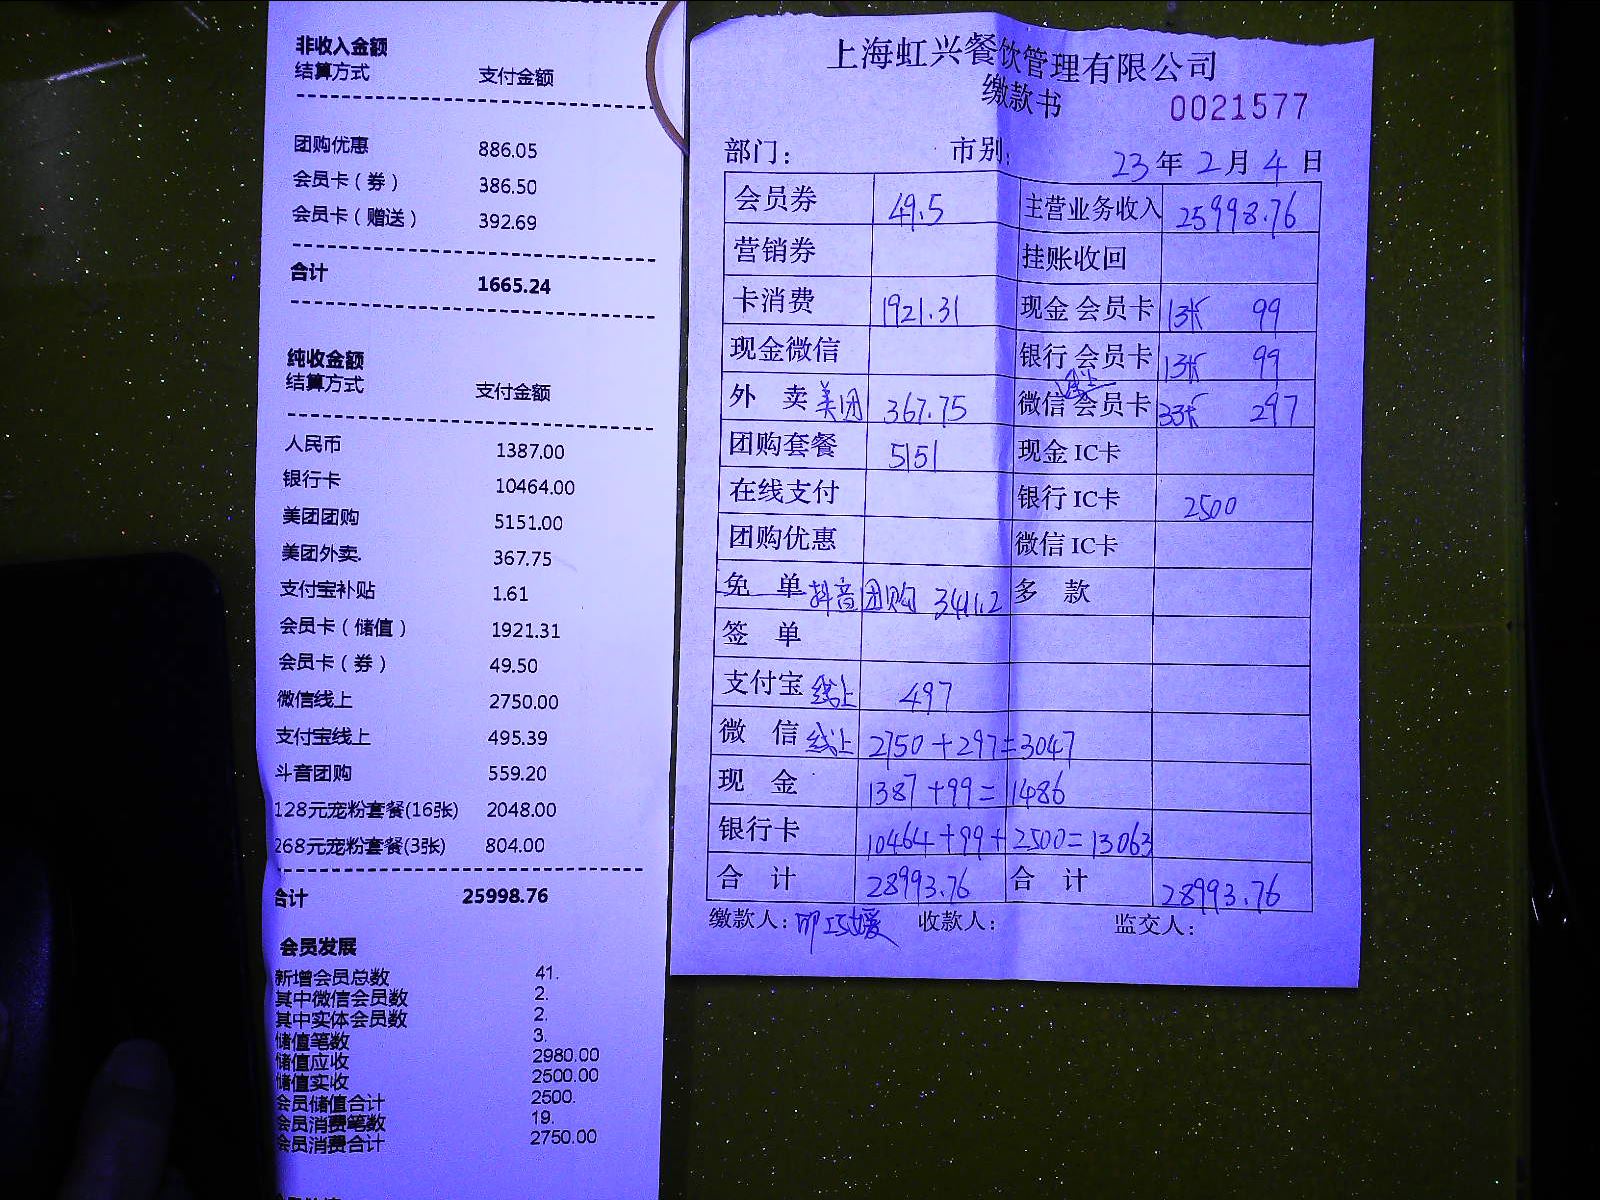 非收入金额
结算方式 支付金额
团购优惠 886.05
会员卡（券） 386.50
会员卡（赠送） 392.69
合计 1665.24
纯收金额
结算方式 支付金额
人民币 1387.00
银行卡 10464.00
美团团购 5151.00
美团外卖. 367.75
支付宝补贴 1.61
会员卡（储值） 1921.31
会员卡（券） 49.50
微信线上 2750.00
支付宝线上 495.39
斗音团购 559.20
128元宠粉套餐(16张) 2048.00
268元宠粉套餐(3张) 804.00
合计 25998.76
会员发展
新增会员总数 41.
其中微信会员数 2.
其中实体会员数 2.
储值笔数 3.
储值应收 2980.00
储值实收 2500.00
会员储值合计 2500.
会员消费笔数 19.
会员消费合计 2750.00
上海虹兴餐饮管理有限公司
缴款书 0021577
部门： 市别： 23年2月4日
会员券 49.5 主营业务收入 25998.76
营销券 挂账收回
卡消费 1921.31 现金 会员卡 1张 99
现金微信 银行 会员卡 1张 99
外 卖 美团 367.75 微信 线上 会员卡 33张 297
团购套餐 5151 现金 IC卡
在线支付 银行 IC卡 2500
团购优惠 微信 IC卡
免 单 抖音团购 3411.2 多 款
签 单
支付宝 线上 497
微 信 线上 2750+297=3047
现 金 1387+99=1486
银行卡 10464+99+2500=13063
合 计 28993.76 合 计 28993.76
缴款人： 收款人： 监交人：